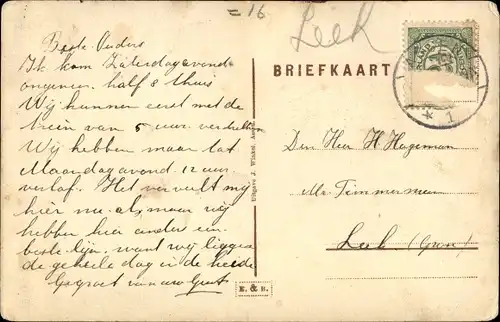 16
Leek
BRIEFKAART
1
Beste Ouders
Ik kom Zaterdagavond
ongeveer half 8 thuis
Wij kunnen eerst met de
trein van 5 uur
Wij hebben maar tot
Maandagavond 12 uur
verlof. Het verveelt mij
hier nu als, maar wij
hebben hier anders een
beste tijd, want wij liggen
de geheele dag in de heide
Gegroet van uw
Uitgave J. Assen.
E. & B.
Den Heer H Hageman
Mr. Timmerman
Leek (Gron)